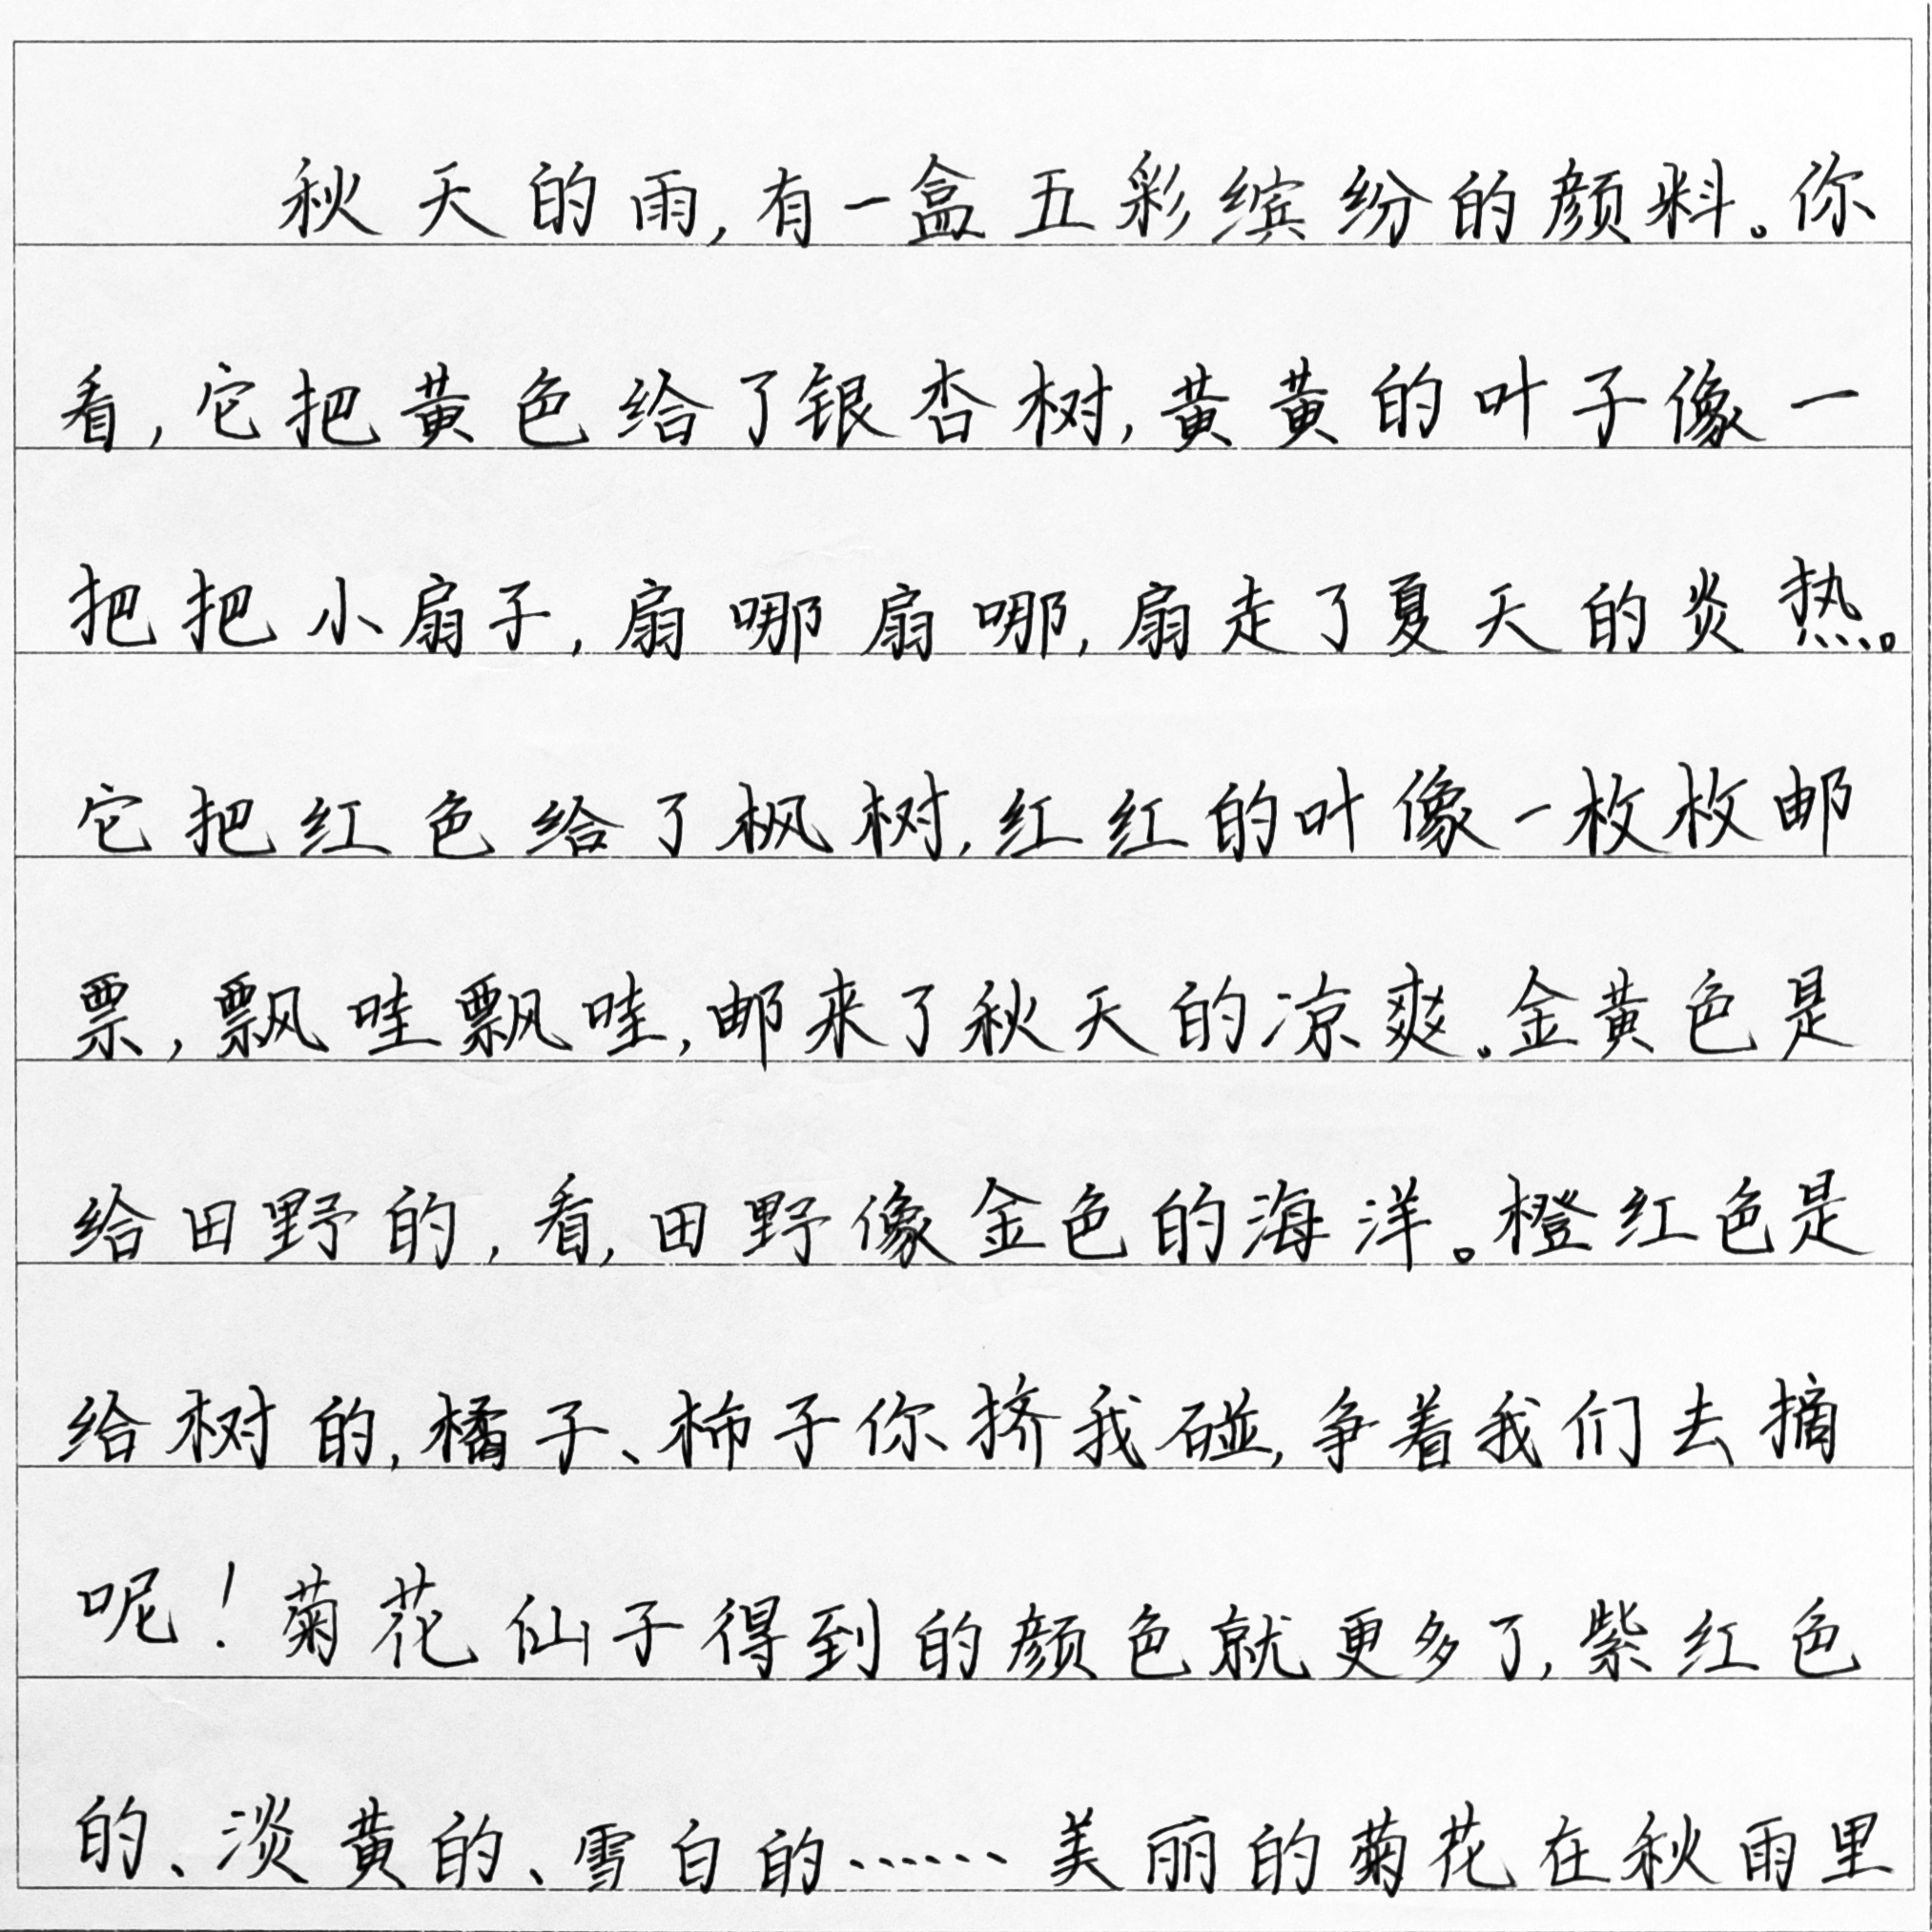 秋天的雨,有一盒五彩缤纷的颜料。你
看,它把黄色给了银杏树,黄黄的叶子像一
把把小扇子,扇哪扇哪,扇走了夏天的炎热。
它把红色给了枫树,红红的叶像一枚枚邮
票,飘哇飘哇,邮来了秋天的凉爽。金黄色是
给田野的,看,田野像金色的海洋。橙红色是
给树的,橘子、柿子你挤我碰,争着我们去摘
呢!菊花仙子得到的颜色就更多了,紫红色
的、淡黄的、雪白的……美丽的菊花在秋雨里